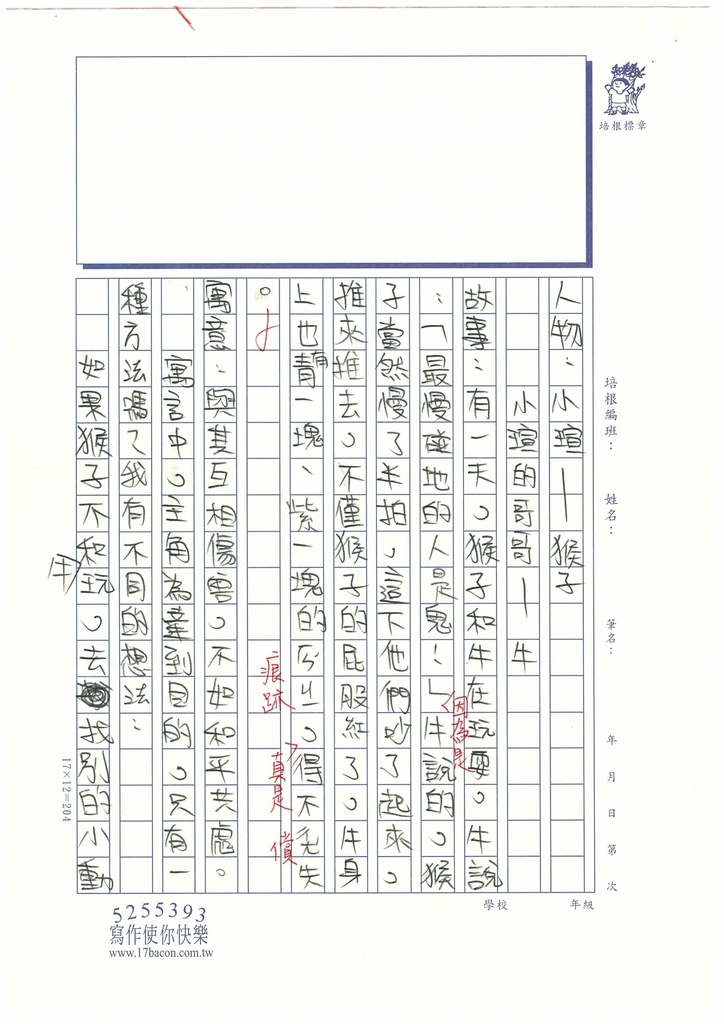 培根標章
培根編班：　姓名：　筆名：　年　月　日　第　次
學校　年級
人物：小瑄—猴子
小瑄的哥哥—牛
故事：有一天，猴子和牛在玩耍，牛說
：「最慢碰地的人是鬼！」牛說的，猴
因為是
子當然慢了半拍，這下他們吵了起來，
推來推去，不僅猴子的屁股紅了，牛身
上也青一塊、紫一塊的，得不
失
痕跡
真是
償
。
寓意：與其互相傷害，不如和平共處。
寓言中，主角為達到目的，只有一
種方法嗎？我有不同的想法：
如果猴子不和玩，去找別的小動
牛
17×12=204
5255393
寫作使你快樂
www.17bacon.com.tw